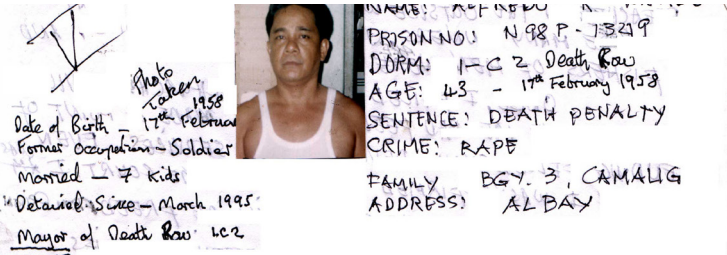 Photo
Taken
1958
Date of Birth – 17th Februa
Former Occupation – Soldier
Married – 7 Kids
Detained Since – March 1995
Mayor of Death Row 1.C2
NAME: ALFREDO
PRISON NO: N98P-1329
DORM: 1-C2 Death Row
AGE: 43 - 17th February 1958
SENTENCE: DEATH PENALTY
CRIME: RAPE
FAMILY BGY. 3, CAMALIG
ADDRESS: ALBAY